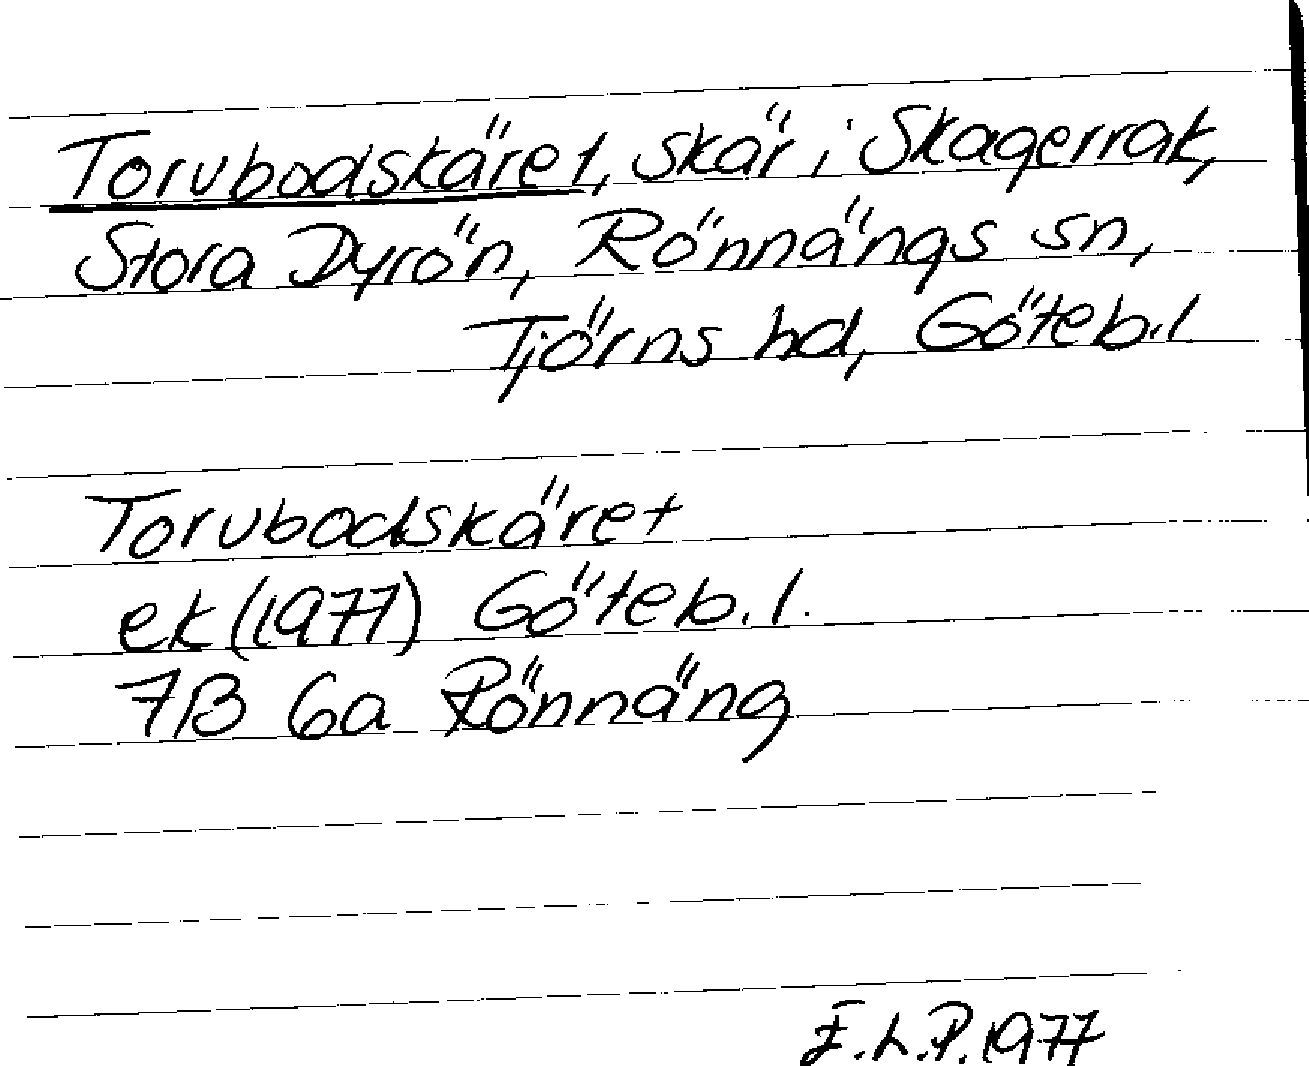 Torvbodskäret, skär i Skagerrak,
Stora Dyrön, Rönnängs sn,
Tjörns hd, Göteb.l
Torvbodskäret
ek (1977) Göteb. l.
7B 6a Rönnäng
E.L.P. 1977